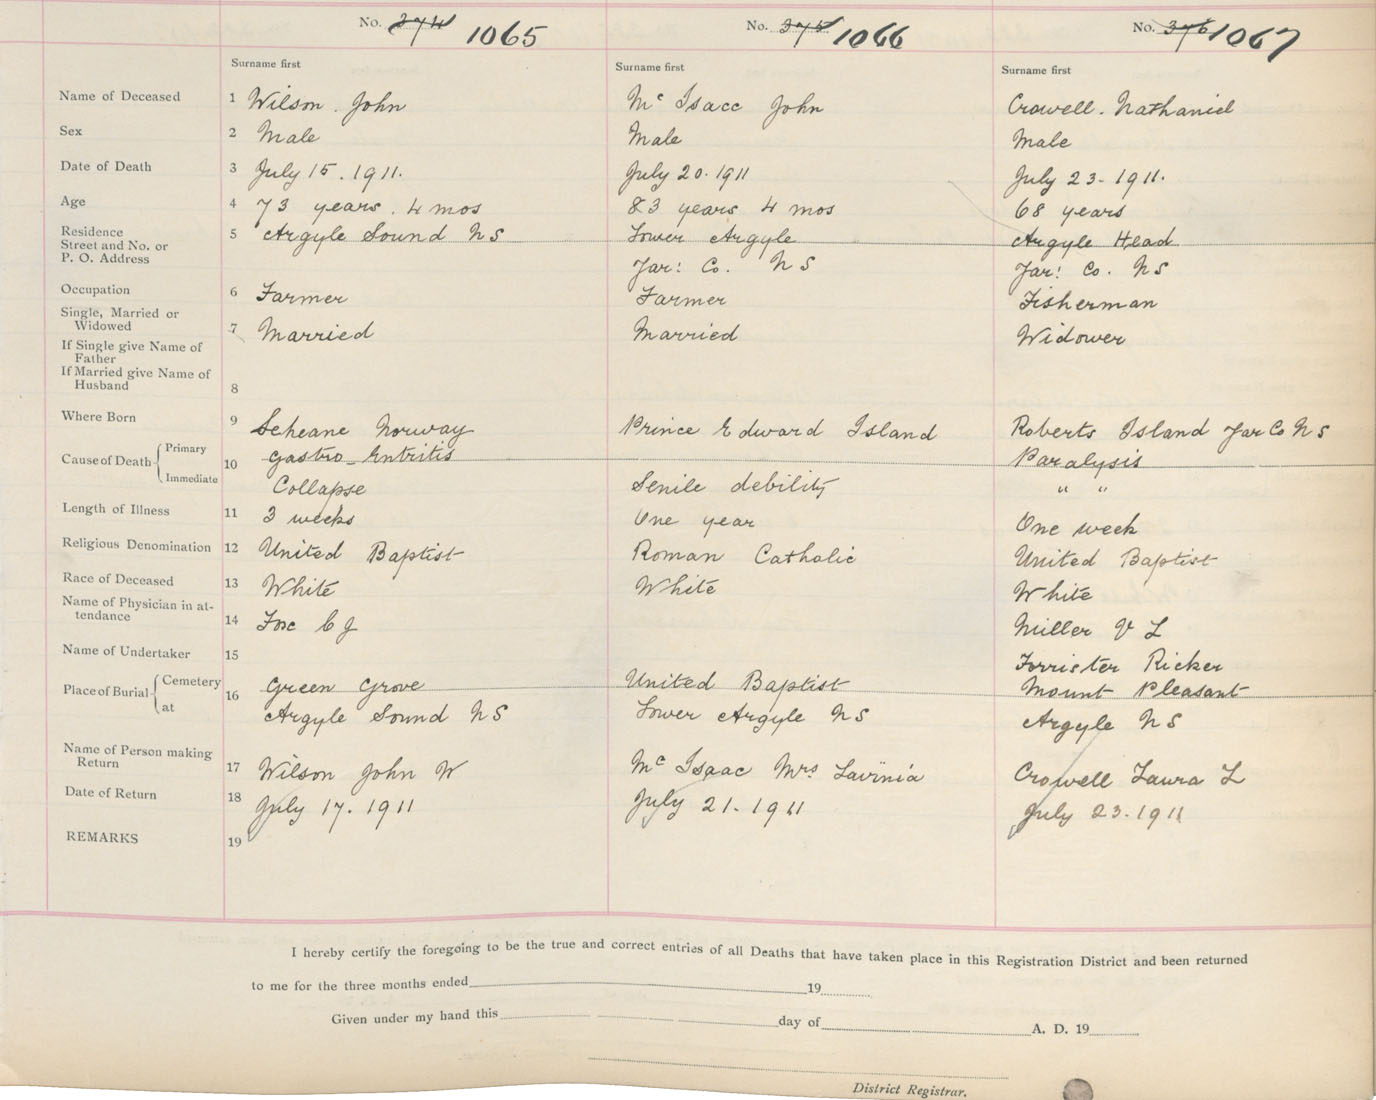 No. 374 1065 No. 375 1066 No. 376 1067
Surname first Surname first Surname first
Name of Deceased 1 Wilson. John Mc Isacc John Crowell. Nathaniel
Sex 2 Male Male Male
Date of Death 3 July 15. 1911. July 20. 1911 July 23-1911.
Age 4 73 years. 4 mos 83 years 4 mos 68 years
Residence
Street and No. or 5 Argyle Sound NS Lower Argyle Argyle Head
P. O. Address Yar: Co. NS Yar: Co. NS
Occupation 6 Farmer Farmer Fisherman
Single, Married or
Widowed 7 Married Married Widower
If Single give Name of
Father
If Married give Name of
Husband 8
Where Born 9 Scheane Norway Prince Edward Island Roberts Island Yar Co NS
Cause of Death Primary 10 Gastro-Entritis Paralysis
Immediate Collapse Senile debility " "
Length of Illness 11 3 weeks One year One week
Religious Denomination 12 United Baptist Roman Catholic United Baptist
Race of Deceased 13 White White White
Name of Physician in at-
tendance 14 Fox C J Miller V L
Name of Undertaker 15 Forrister Ricker
Place of Burial Cemetery 16 Green Grove United Baptist Mount Pleasant
at Argyle Sound NS Lower Argyle NS Argyle NS
Name of Person making
Return 17 Wilson John W Mc Isaac Mrs Lavinia Crowell Laura L
Date of Return 18 July 17. 1911 July 21. 1911 July 23. 1911
REMARKS 19
I hereby certify the foregoing to be the true and correct entries of all Deaths that have taken place in this Registration District and been returned
to me for the three months ended 19
Given under my hand this day of A. D. 19
District Registrar.